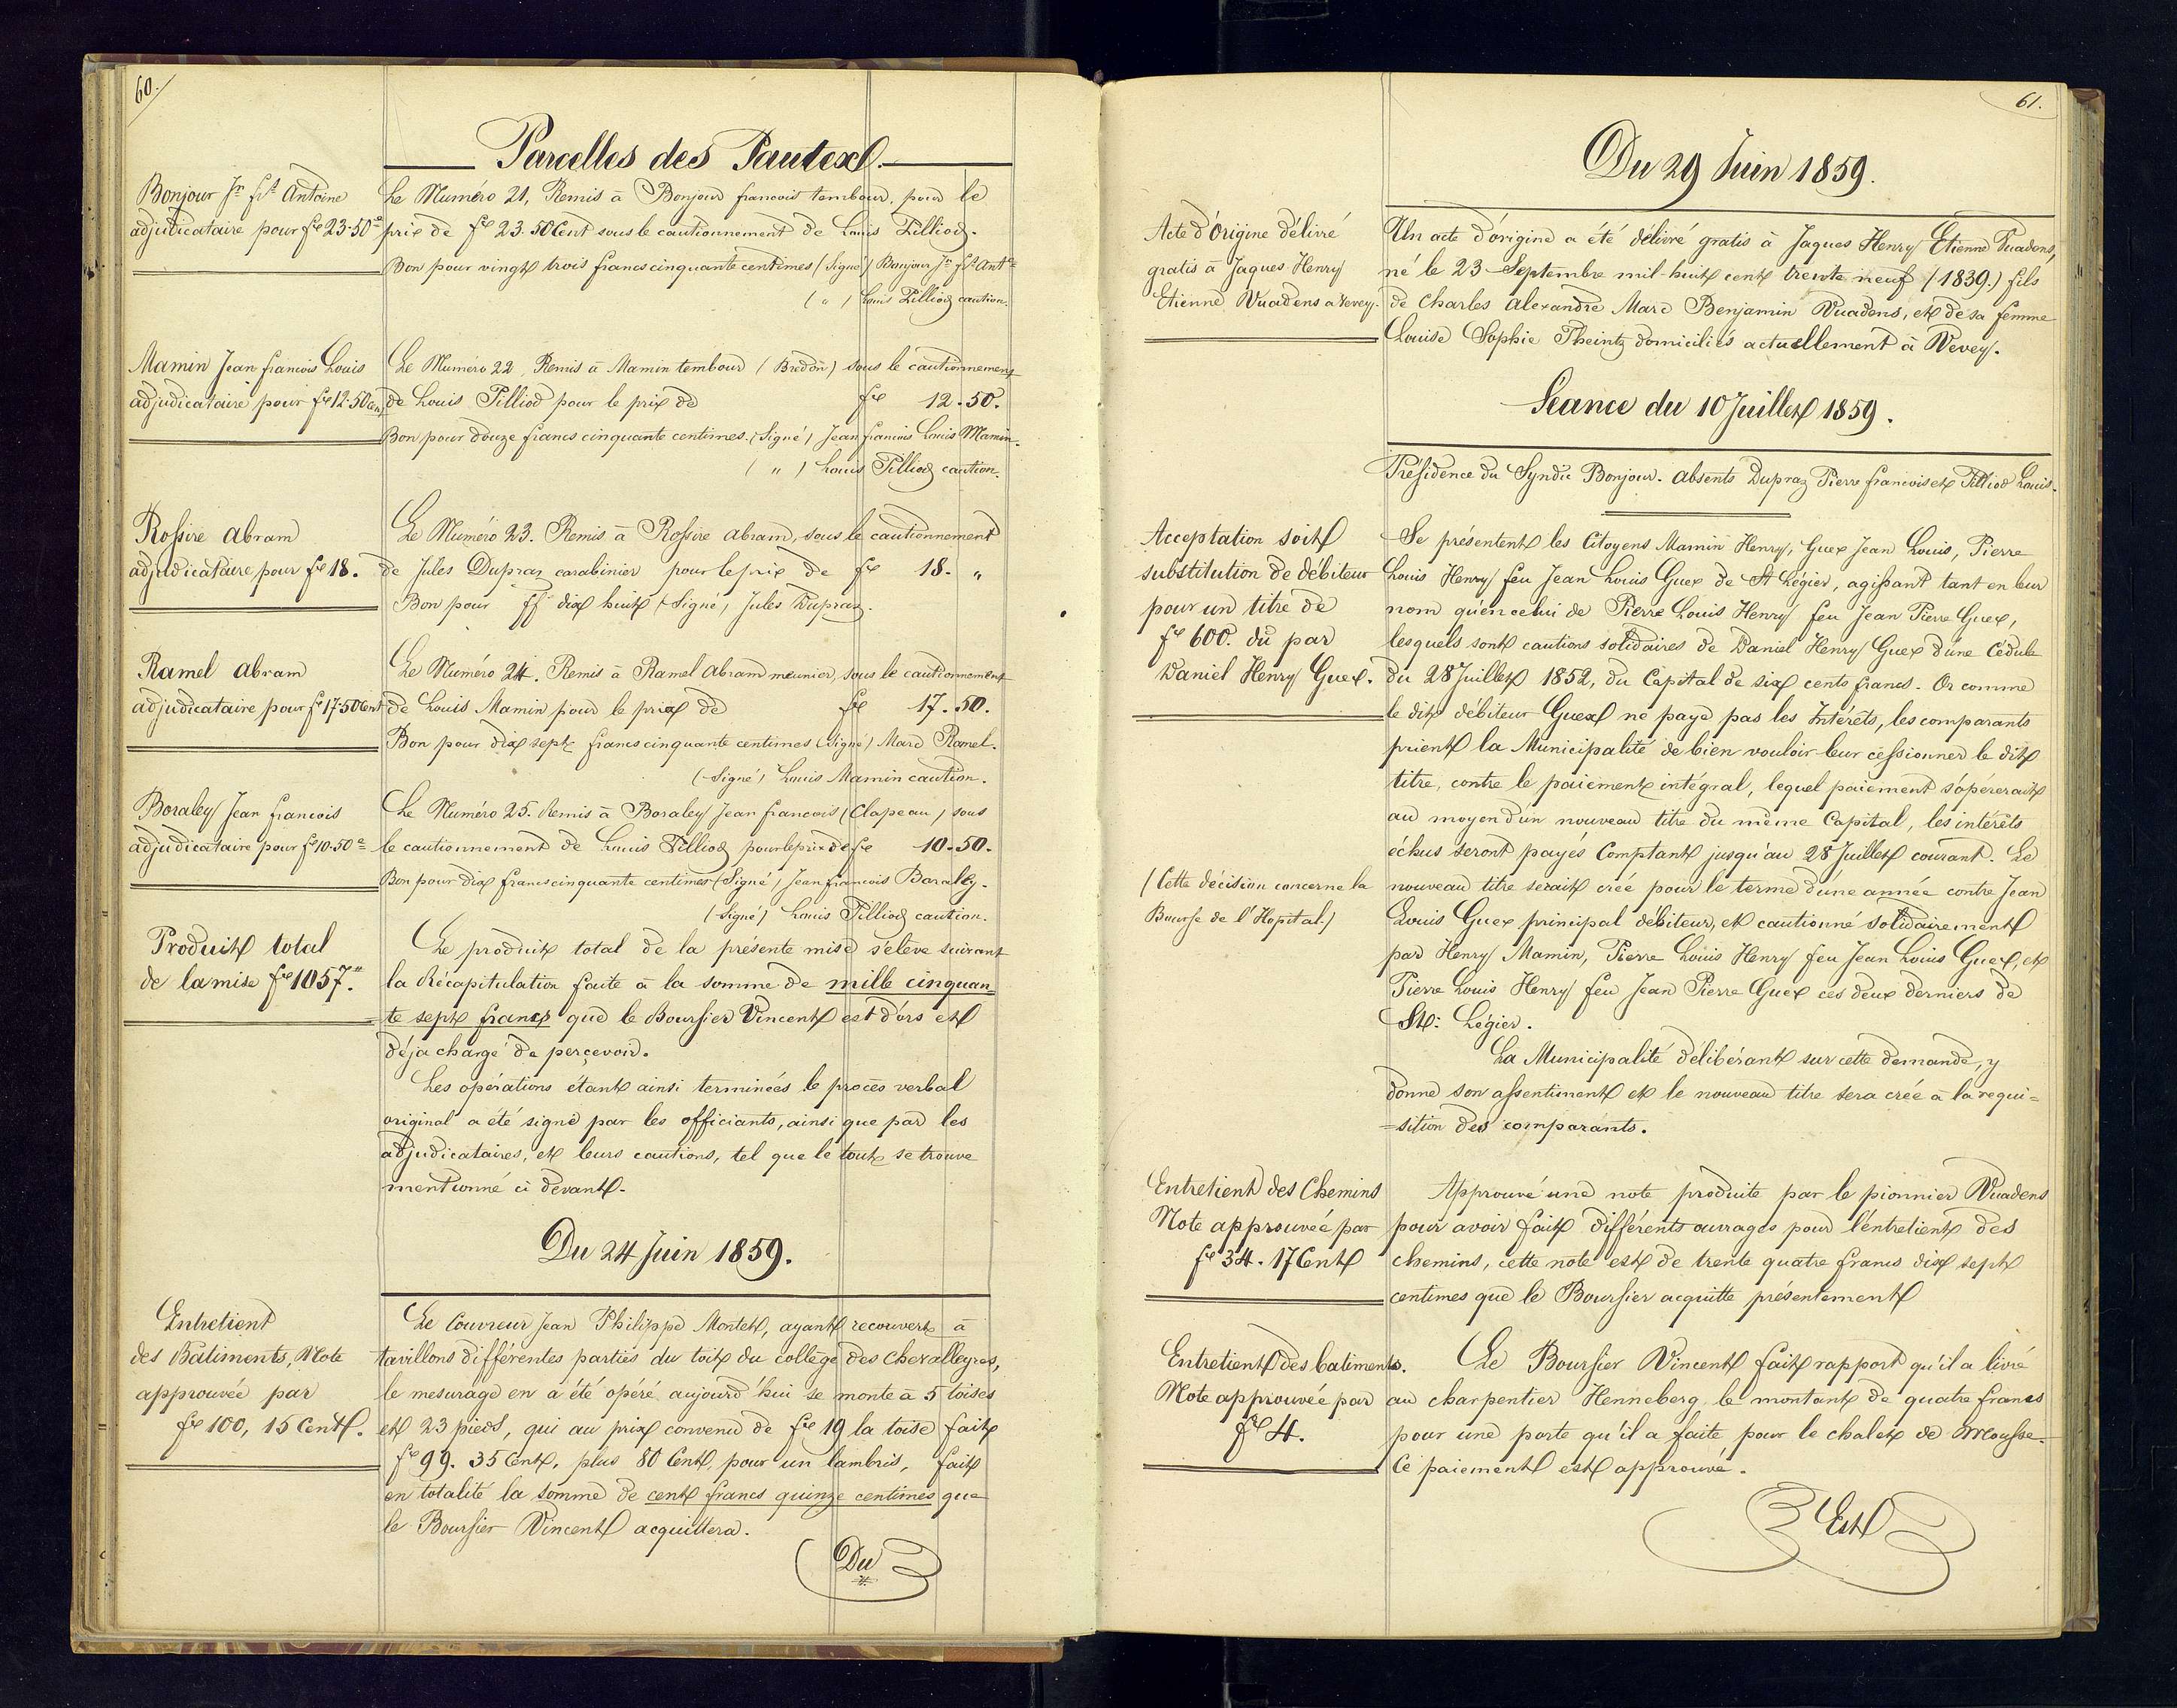 60.
Parcelles des Pautex.
Bonjour Jn frs Antoine
adjudicataire pour fr 23.50 c
Le Numéro 21, Remis à Bonjour francois tembour, pour le
prix de fr 23.50 Cent sous le cautionnement de Louis Pilliod.
Bon pour vingt trois francs cinquante centimes (Signé) Bonjour Jn frs Ant e
( " ) Louis Pilliod caution.
Mamin Jean francois Louis
adjudicataire pour fr 12.50 Cent
Le Numéro 22, Remis à Mamin tembour (Bredon) sous le cautionnement
de Louis Pilliod pour le prix de fr 12.50.
Bon pour douze francs cinquante centimes. (Signé) Jean francois Louis Mamin.
( " ) Louis Pilliod caution.
Rossire Abram
adjudicataire pour fr 18.
Le Numéro 23. Remis à Rossire Abram, sous le cautionnement
de Jules Dupraz carabinier pour le prix de fr 18. "
Bon pour ff dix huit (Signé) Jules Dupraz.
Ramel Abram
adjudicataire pour fr 17.50 Cent
Le Numéro 24. Remis à Ramel Abram meunier, sous le cautionnement
de Louis Mamin pour le prix de fr 17.50.
Bon pour dix sept francs cinquante centimes (Signé) Marc Ramel.
(Signé) Louis Mamin caution.
Boraley Jean francois
adjudicataire pour fr 10.50 c
Le Numéro 25. Remis à Boraley Jean francois (Clapeau) sous
le cautionnement de Louis Pilliod pour le prix de fr 10.50.
Bon pour dix francs cinquante centimes (Signé) Jean francois Boraley.
(Signé) Louis Pilliod caution.
Produit total
de la mise fr 1057."
Le produit total de la présente mise s'élève suivant
la Récapitulation faite à la somme de mille cinquan=
te sept francs que le Boursier Vincent est d'ors et
déja chargé de perçevoir.
Les opérations étant ainsi terminées le procès verbal
original a été signé par les officiants, ainsi que par les
adjudicataires, et leurs cautions, tel que le tout se trouve
mentionné ci devant.
Du 24 Juin 1859.
Entretient
des Bâtiments, Note
approuvée par
fr 100, 15 Cent.
Le Couvreur Jean Philippe Montet, ayant recouvert à
tavillons différentes parties du toit du collège des Chevalleyres,
le mesurage en a été opéré aujourd'hui se monte à 5 toises
et 23 pieds, qui au prix convenu de fr 19 la toise fait
fr 99. 35 Cent, plus 80 Cent, pour un lambris, fait
en totalité la somme de cent francs quinze centimes que
le Boursier Vincent acquittera.
Du
61.
Du 29 Juin 1859.
Acte d'Origine délivré
gratis à Jaques Henry
Etienne Vuadens a Vevey.
Un acte d'origine a été délivré gratis à Jaques Henry Etienne Vuadens,
né le 23 Septembre mil-huit cent trente neuf (1839.) fils
de Charles Alexandre Marc Benjamin Vuadens, et de sa femme
Louise Sophie Theintz domiciliés actuellement à Vevey.
Séance du 10 Juillet 1859.
Présidence du Syndic Bonjour. Absents Dupraz Pierre francois et Pilliod Louis.
Acceptation soit
substitution de débiteur
pour un titre de
fr 600. dû par
Daniel Henry Guex.
Se présentent les Citoyens Mamin Henry, Guex Jean Louis, Pierre
Louis Henry feu Jean Louis Guex de St Légier, agissant tant en leur
nom qu'en celui de Pierre Louis Henry feu Jean Pierre Guex,
lesquels sont cautions solidaires de Daniel Henry Guex d'une Cédule
du 28 Juillet 1852, du Capital de six cents francs. Or comme
le dit débiteur Guex ne paye pas les Intérêts, les comparants
prient la Municipalité de bien vouloir leur cessionner le dit
titre, contre le paiement intégral, lequel paiement s'opérerait
au moyen d'un nouveau titre du même Capital, les intérêts
échus seront payés Comptant jusqu'au 28 Juillet courant. Le
(Cette décision concerne la
Bourse de l'Hopital.)
nouveau titre serait créé pour le terme d'une année contre Jean
Louis Guex principal débiteur, et cautionné solidairement
par Henry Mamin, Pierre Louis Henry feu Jean Louis Guex, et
Pierre Louis Henry feu Jean Pierre Guex ces deux derniers de
St: Légier.
La Municipalité délibérant sur cette demande, y
donne son assentiment et le nouveau titre sera créé à la requi=
=sition des comparants.
Entretient des Chemins
Note approuvée par
fr 34. 17 Cent
Approuvé une note produite par le pionnier Vuadens
pour avoir fait différents ouvrages pour l'entretient des
chemins, cette note est de trente quatre francs dix sept
centimes que le Boursier acquitte présentement
Entretient des batiments.
Note approuvée par
fr 4.
Le Boursier Vincent fait rapport qu'il a livré
au charpentier Henneberg le montant de quatre francs
pour une porte qu'il a faite pour le chalet de
Ce paiement est approuvé.
Est